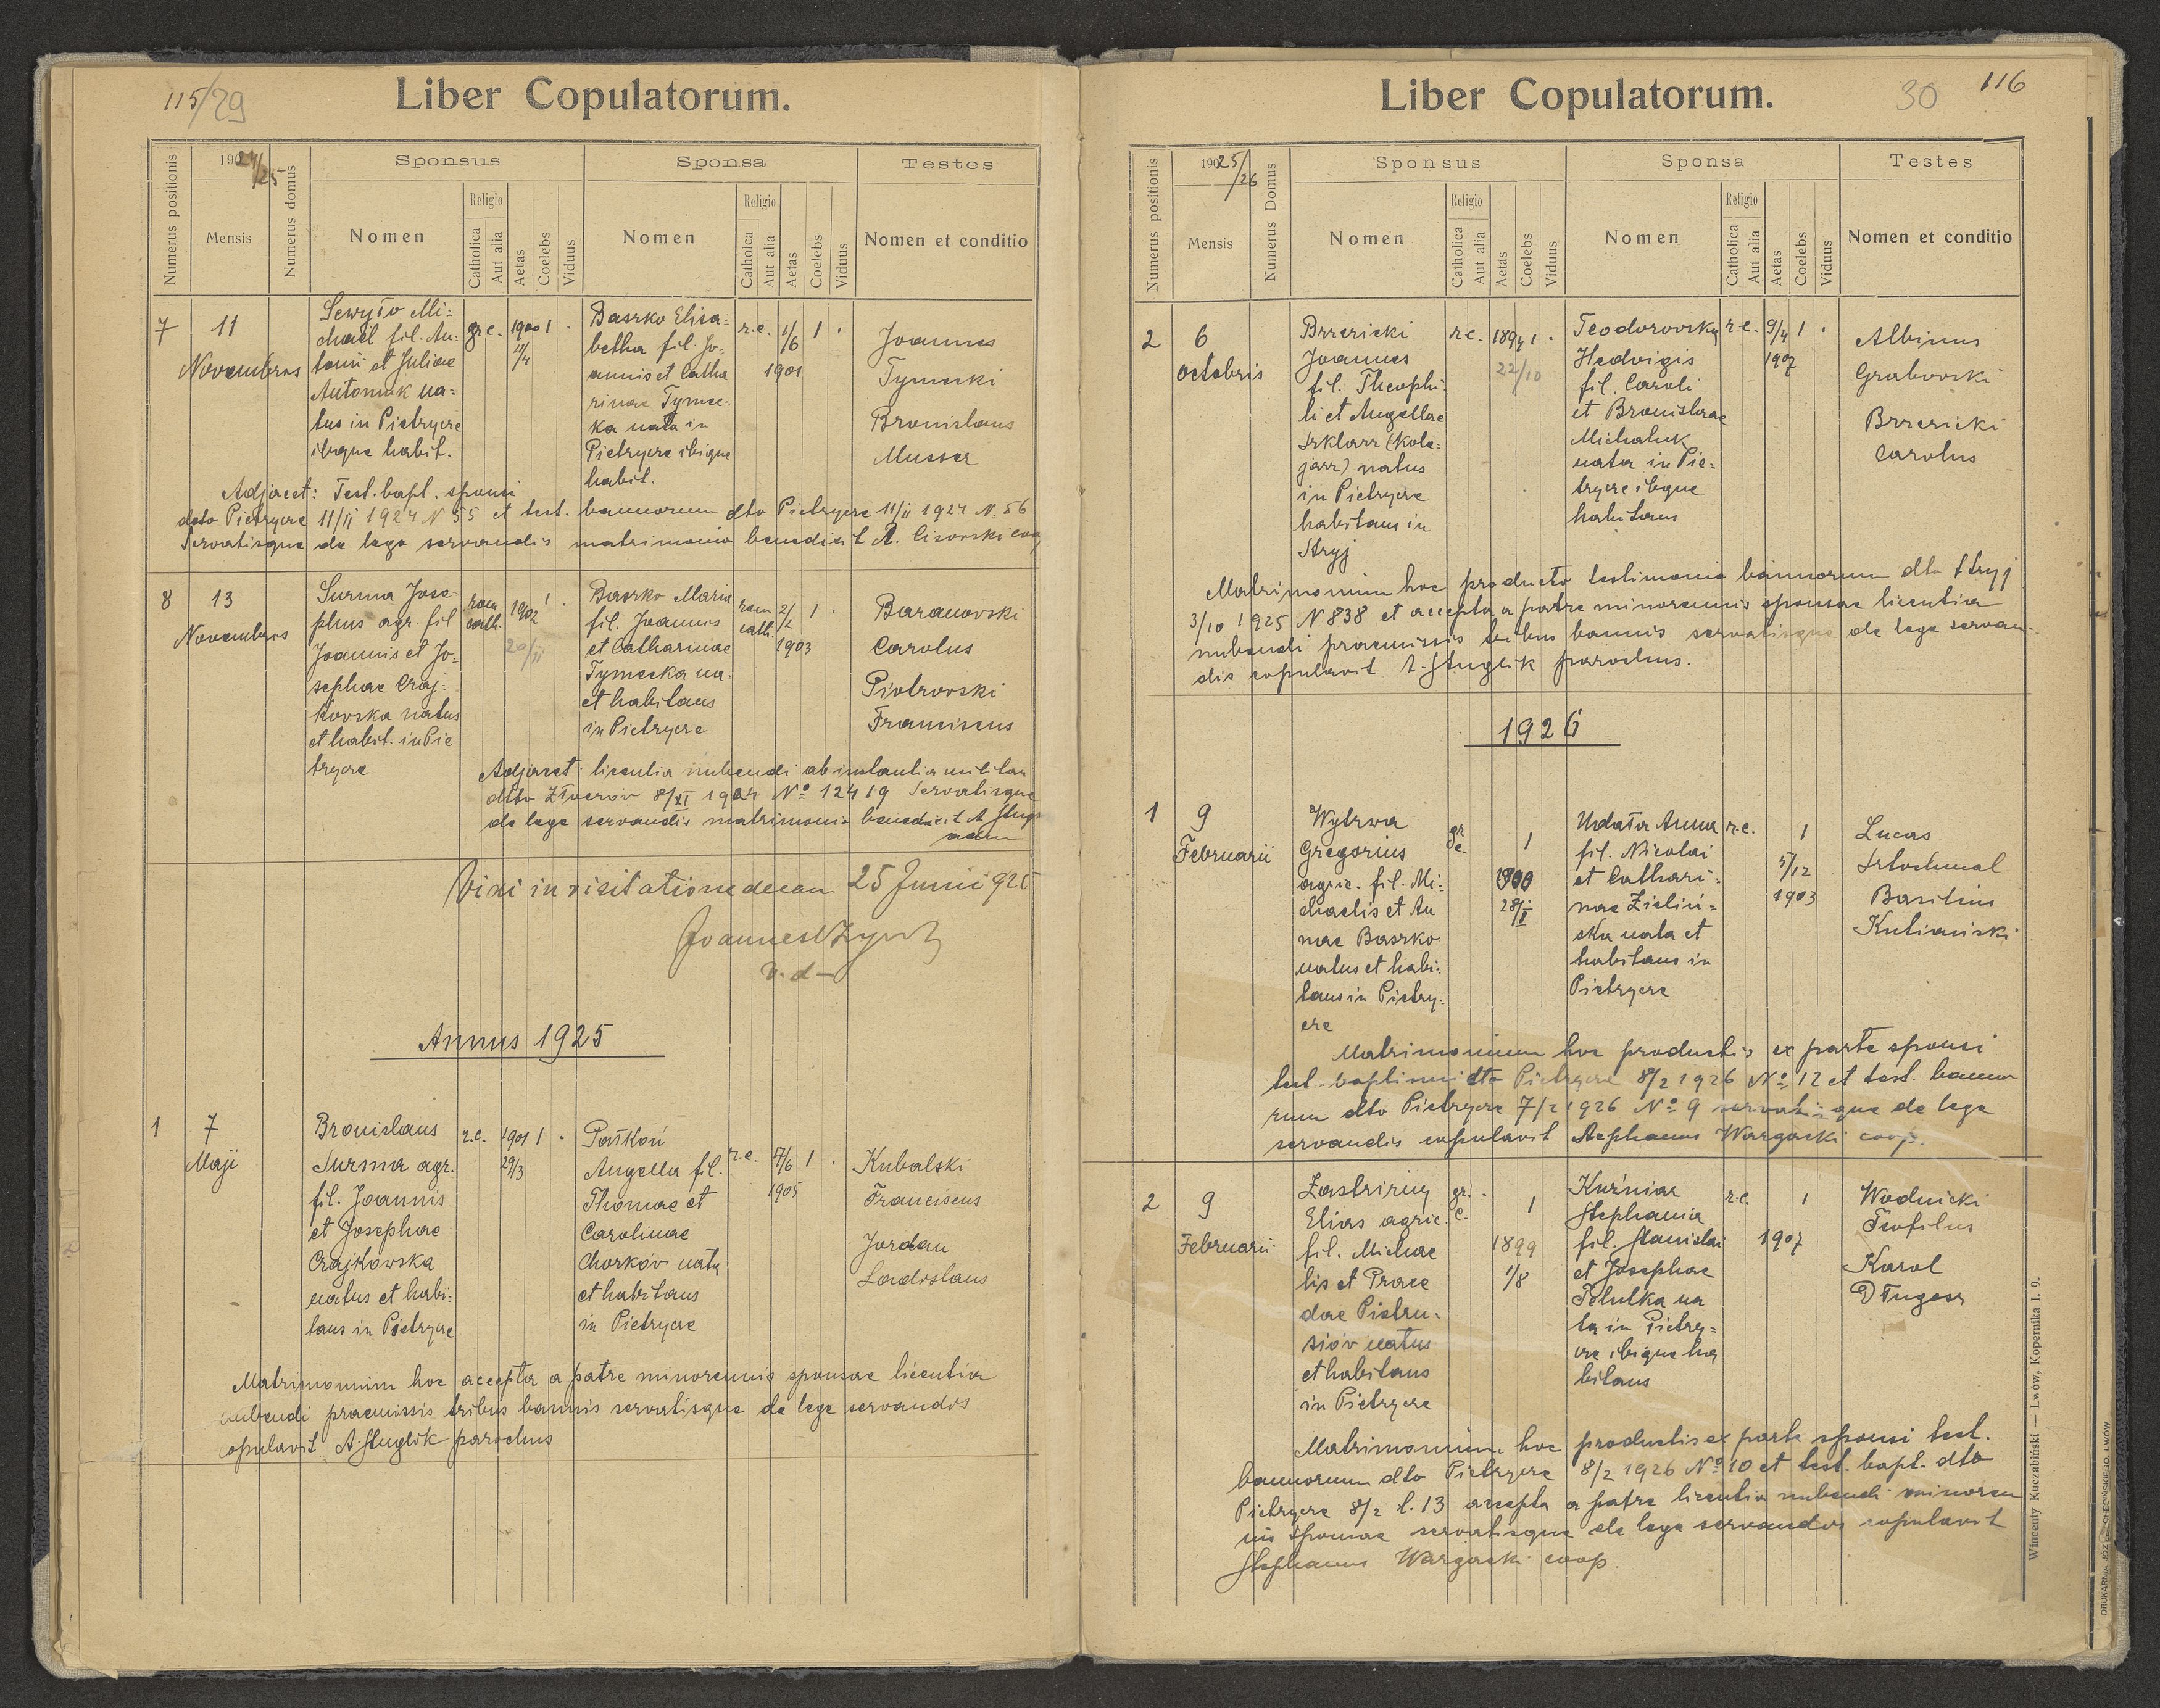 115/29
Liber Copulatorum.
Numerus positionis
1924/25
Mensis
Numerus domus
Sponsus
Nomen
Religio
Catholica
Aut alia
Aetas
Coelebs
Viduus
Sponsa
Nomen
Religio
Catholica
Aut alia
Aetas
Coelebs
Viduus
Testes
Nomen et conditio
7
11
Novembris
Sewyło Mi=
chael fil. An=
tonii et Juliae
Antoniuk na=
tus in Pietrycze
ibique habit.
gr c.
1900
11/4
1
Baszko Elisa=
betha fil. Jo=
annis et Catha
rinae Tymec=
ka nata in
Pietrycze ibique
habit.
r.c.
1/6
1901
1
Joannes
Tymecki
Bronislaus
Musser
Adjacet: Test. bapt. sponsi
dcto Pietrycze 11/11 1924 N 55 et test. bannorum dto Pietrycze 11/11 1924 N. 56
Servatisque de lege servandis matrimonio benedixit A. Lisowski coop
8
13
Novembris
Surma Jose=
phus agr. fil
Joannis et Jo=
sephae Czaj=
kowska natus
et habit. in Pie
trycze
rom
cath.
1902
20/11
1
Baszko Maria
fil. Joannis
et Catharinae
Tymecka na=
et habitans
in Pietrycze
rom
cath.
2/2
1903
1
Baranowski
Carolus
Piotrowski
Franciscus
Adjacet: licentia nubendi ab instantia militar
dtto Złoczów 8/XI 1924 Nº 12419 Servatisque
de lege servandis matrimonio benedixit A Stug
Vidi in visitatione decan 25 Junii 925
Joannes
v. d
Annus 1925
1
7
Maji
Bronislaus
Surma agr.
fil. Joannis
et Josephae
Czajkowska
natus et habi=
tans in Pietrycze
r.c.
1901
29/3
1
Pałkoń
Angella fil.
Thomae et
Carolinae
Chorków nata
et habitans
in Pietrycze
r.c.
17/6
1905
1
Kubalski
Franciscus
Jordan
Ladislaus
Matrimonium hoc accepta a patre minorennis sponsae licentia
nubendi praemissis tribus bannis servatisque de lege servandis
copulavit A. Stuglik parochus
30
116
Liber Copulatorum.
Numerus positionis
1925/26
Mensis
Numerus Domus
Sponsus
Nomen
Religio
Catholica
Aut alia
Aetas
Coelebs
Viduus
Sponsa
Nomen
Religio
Catholica
Aut alia
Aetas
Coelebs
Viduus
Testes
Nomen et conditio
2
6
Octobris
Brzezicki
Joannes
fil. Theophi=
li et Angellae
Szklarz (kole=
jarz) natus
in Pietrycze
habitans in
Stryj
r.c.
1894
22/10
1
Teodorowska
Hedvigis
fil. Caroli
et Bronislavae
Michaluk
nata in Pie=
trycze ibique
habitans
r.c.
9/4
1907
1
Albinus
Grabowski
Brzezicki
Carolus
Matrimonium hoc producto testimonio bannorum dto Stryj
3/10 1925 N 838 et accepta a patre minorennis sponsae licentia
nubendi praemissis tribus bannis servatisque de lege servan=
dis copulavit A. Stuglik parochus.
1926
1
9
Februarii
Wytrwa
Gregorius
agric. fil. Mi=
chaelis et An
nae Baszko
natus et habi=
tans in Pietry=
cze
gr
c.
1900
28/I
1
Udała Anna
fil. Nicolai
et Cathari=
nae Zieliń=
ska nata et
habitans in
Pietrycze
r.c.
5/12
1903
1
Lucas
Sztochmal
Basilius
Kuliański
Matrimonium hoc productis ex parte sponsi
test. baptismi dto Pietrycze 8/2 1926 Nº 12 et test. banno
rum dto Pietrycze 7/2 1926 Nº 9 servatisque de lege
servandis copulavit Stephanus Wargocki coop.
2
9
Februarii
Zastrizny
Elias agric.
fil. Michae
lis et Praxe
dae Pietru=
siów natus
et habitans
in Pietrycze
gr.
c.
1899
1/8
1
Kuźniar
Stephania
fil. Stanislai
et Josephae
Telutka na
ta in Pietry=
cze ibique ha
bitans
r.c.
1907
1
Wodnicki
Teofilus
Karol
Długosz
Matrimonium hoc productis ex parte sponsi test.
bannorum dto Pietrycze 8/2 1926 Nº 10 et test. bapt. dto
Pietrycze 8/2 l. 13 accepta a patre licentia nubendi minoren
nis sponsae servatisque de lege servandis copulavit
Stephanus Wargocki coop.
Wincenty Kuczabiński — Lwów, Kopernika l. 9.